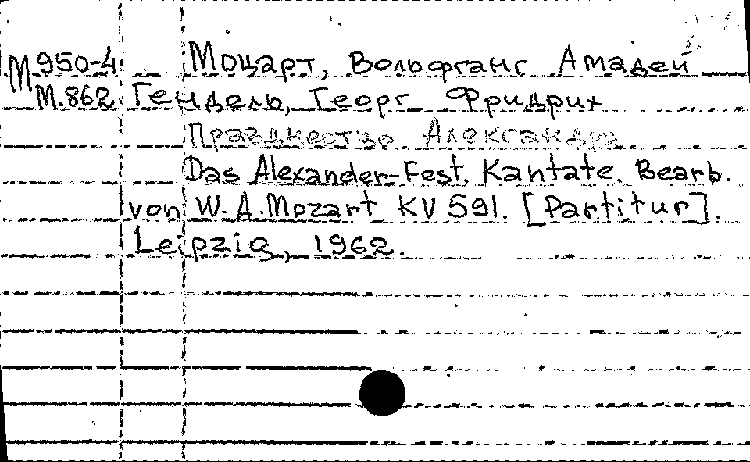 М950-4 Моцарт, Вольфганг Амадей
М.862 Гендель, Георг Фридрих
Празднество Александра
Das Alexander-Fest. Kantate. Bearb.
von W. A. Mozart KV 591. [Partitur].
Leipzig, 1962.